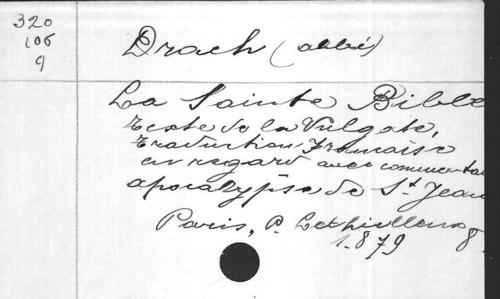 320
106
9
Drach (abbé)
La Sainte Bible
texte de la Vulgate,
traduction Française
en regard avec commentai
apocalypse de St Jean
Paris, P. Lethielleux
8.
1.879